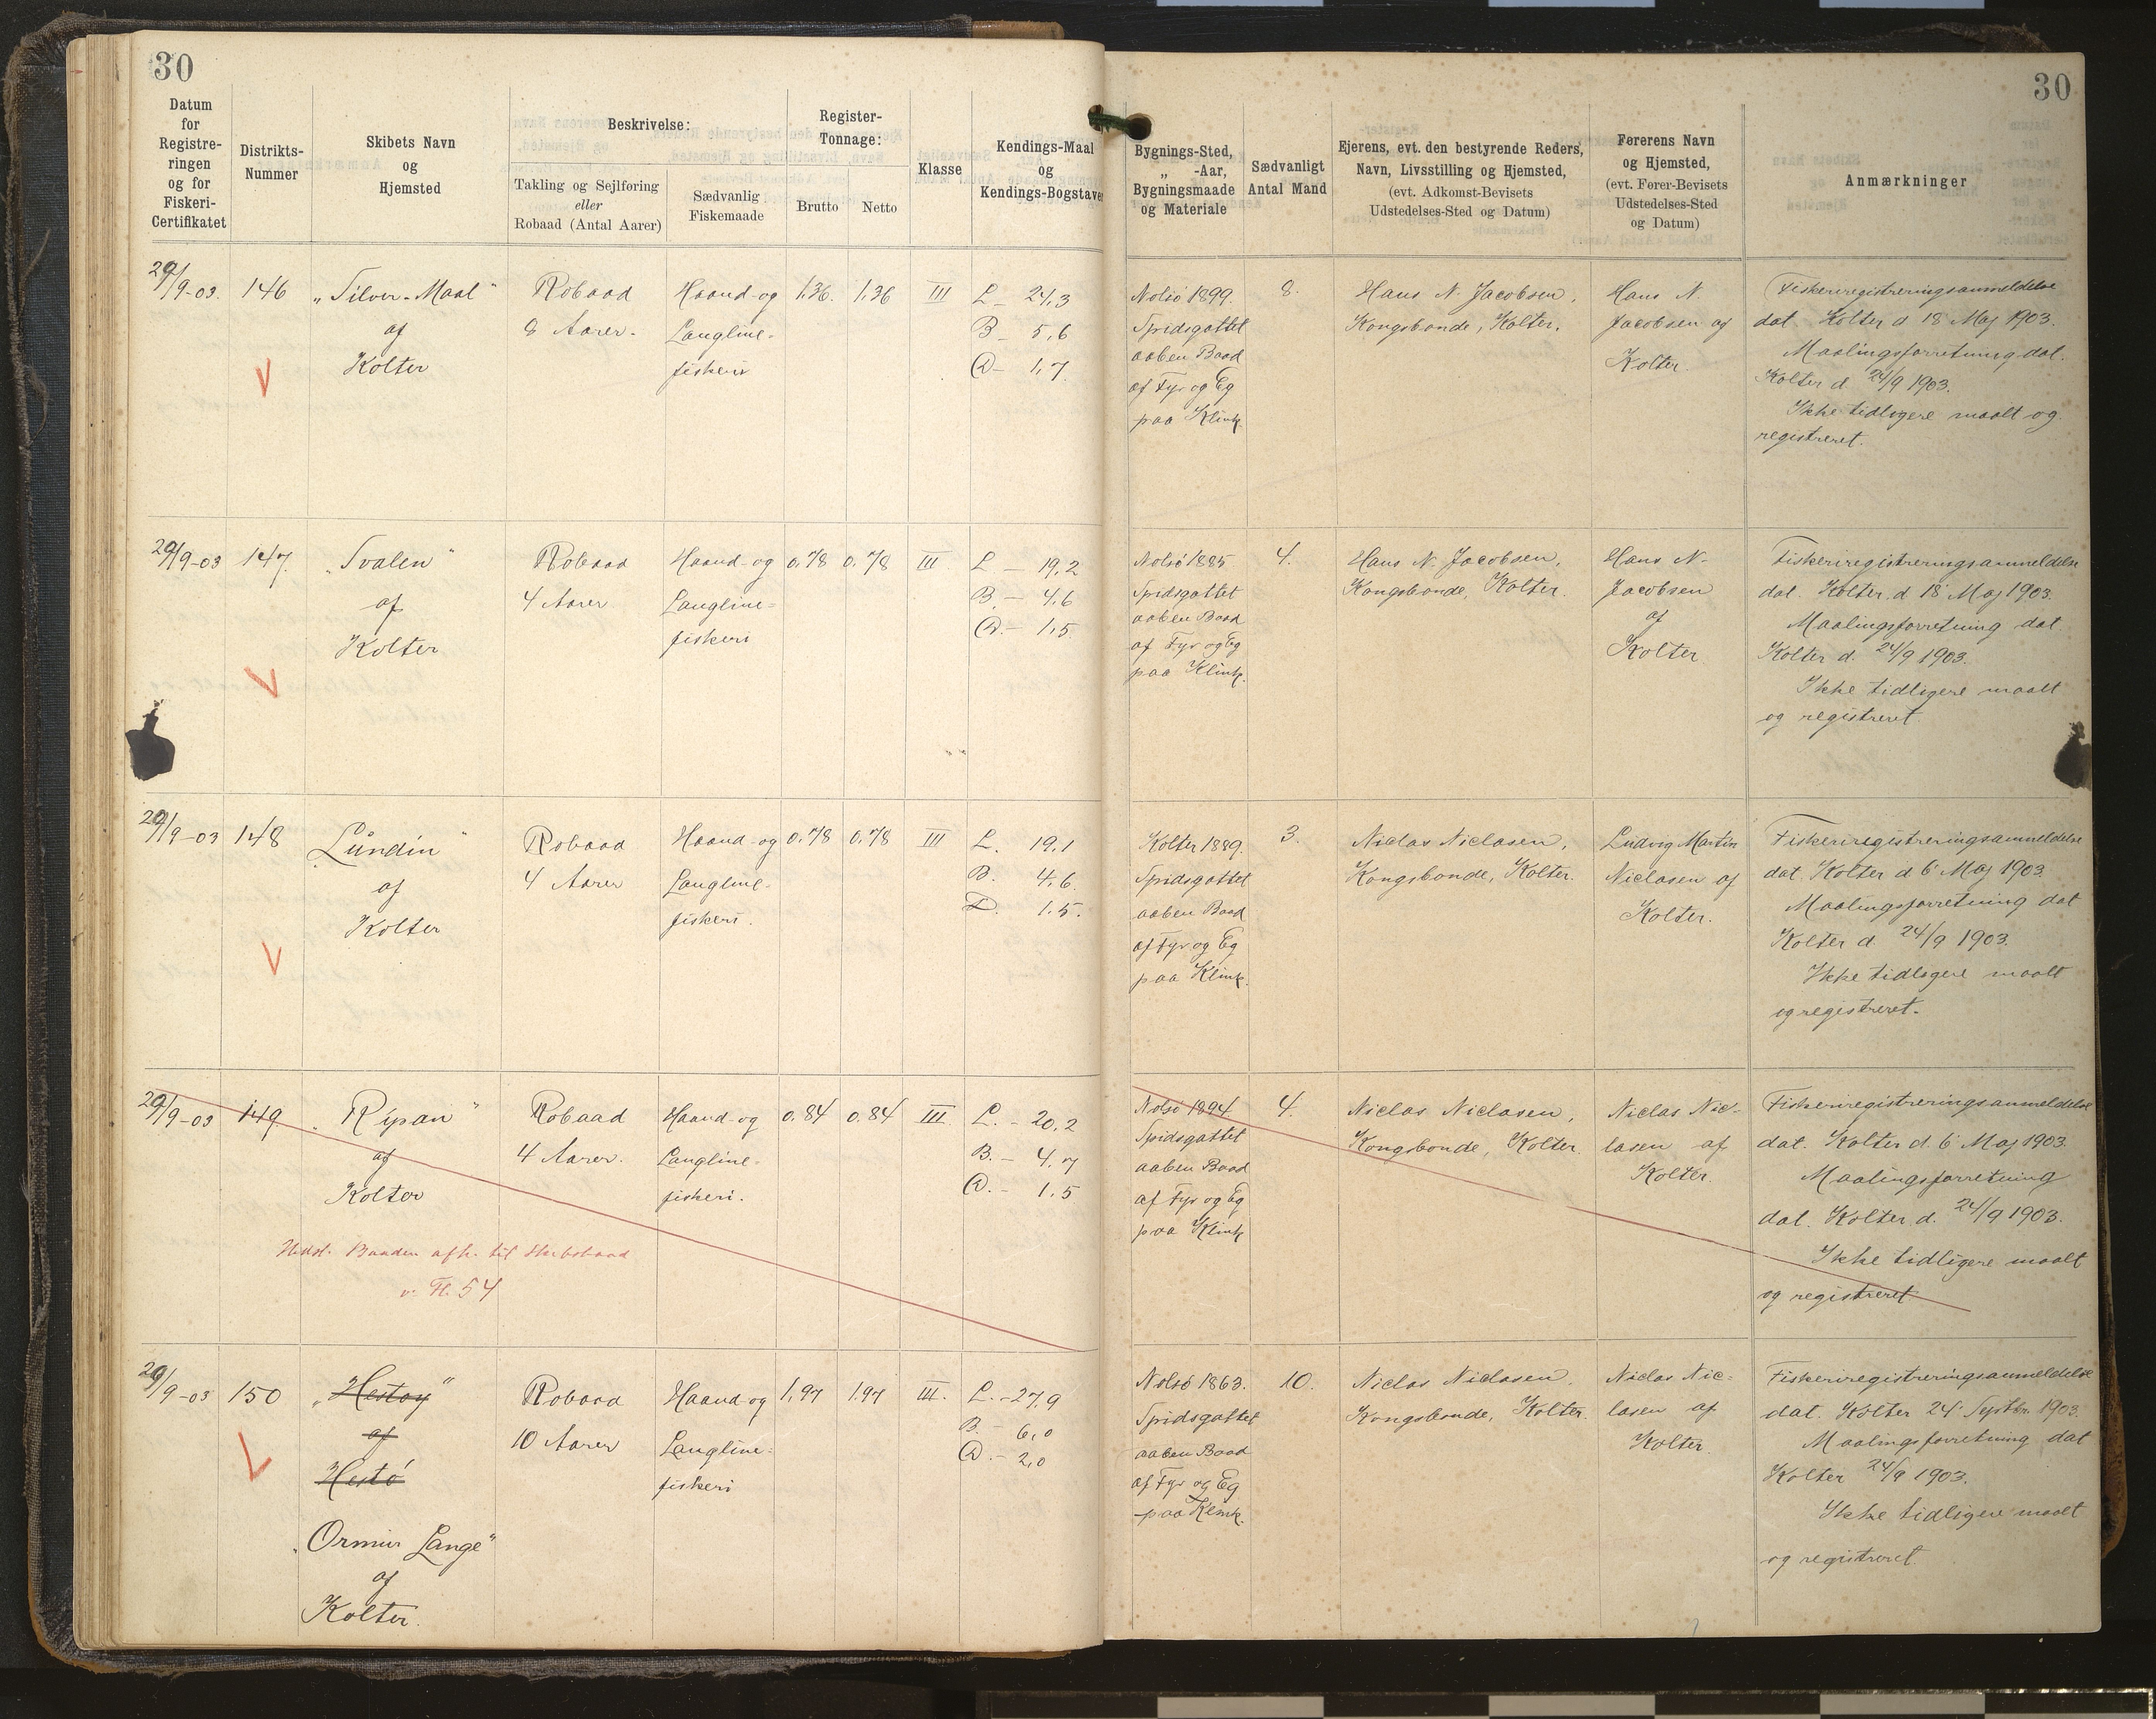 30
30
Datum
for
Registre-
ringen
og for
Fiskeri-
Certifikatet
Distrikts-
Nummer
Skibets Navn
og
Hjemsted
Beskrivelse:
Takling og Sejlføring
eller
Robaad (Antal Aarer)
Sædvanlig
Fiskemaade
Register-
Tonnage:
Brutto
Netto
Klasse
Kendings-Maal
og
Kendings-Bogstaver
Bygnings-Sted,
„ -Aar,
Bygningsmaade
og Materiale
Sædvanligt
Antal Mand
Ejerens, evt. den bestyrende Reders,
Navn, Livsstilling og Hjemsted,
(evt. Adkomst-Bevisets
Udstedelses-Sted og Datum)
Førerens Navn
og Hjemsted,
(evt. Fører-Bevisets
Udstedelses-Sted
og Datum)
Anmærkninger
29/9-03.
146
„Silver-Maal"
af
Kolter
Robaad
8 Aarer.
Haand- og
Langline-
fiskeri
1,36.
1,36
III
L - 24,3
B - 5,6
D - 1,7
Nolsö 1899.
Spidsgattet
aaben Baad
af Fyr og Eg
paa Klink.
8.
Hans N. Jacobsen,
Kongsbonde, Kolter.
Hans N.
Jacobsen af
Kolter.
Fiskeriregistreringsanmeldelse
dat. Kolter d 18 Maj 1903.
Maalingsforretning dat.
Kolter d. 24/9 1903.
Ikke tidligere maalt og
registreret.
29/9-03
147.
„Svalen"
af
Kolter
Robaad
4 Aarer
Haand- og
Langline-
fiskeri
0,78
0,78
III
L - 19,2
B. - 4,6
D. - 1,5
Nolsö 1885
Spidsgattet
aaben Baad
af Fyr og Eg
paa Klink.
4.
Hans N. Jacobsen,
Kongsbonde, Kolter.
Hans N.
Jacobsen
af
Kolter
Fiskeriregistreringsanmeldelse
dat. Kolter d 18 Maj 1903.
Maalingsforretning dat.
Kolter d. 24/9 1903.
Ikke tidligere maalt
og registreret
29/9-03
148
„Lundin"
af
Kolter
Robaad
4 Aarer
Haand- og
Langline-
fiskeri.
0,78
0,78
III
L. 19,1
B. 4,6.
D. 1,5.
Kolter 1889.
Spidsgattet
aaben Baad
af Fyr og Eg
paa Klink.
3.
Niclas Niclasen,
Kongsbonde, Kolter.
Ludvig Martin
Niclasen af
Kolter.
Fiskeriregistreringsanmeldelse
dat. Kolter d 6 Maj 1903
Maalingsforretning dat
Kolter d 24/9 1903.
Ikke tidligere maalt
og registreret.
29/9-03
149
„Ripan"
af
Kolter
Robaad
4 Aarer.
Haand- og
Langline-
fiskeri.
0,84
0,84
III.
L. - 20,2
B. - 4,7
D. - 1,5
Nolsö 1894
Spidsgattet
aaben Baad
af Fyr og Eg
paa Klink
4.
Niclas Niclasen,
Kongsbonde, Kolter.
Niclas Nic-
lasen af
Kolter.
Fiskeriregistreringsanmeldelse
dat. Kolter d. 6 Maj 1903.
Maalingsforretning
dat. Kolter d. 24/9 1903.
Ikke tidligere maalt
og registreret
Udsl. Baaden afh. til Skibsbaad
v. Fl. 54
29/9-03
150
„Hestoy"
af
Hestö
„Ormur Lange"
af
Kolter.
Robaad
10 Aarer
Haand- og
Langline-
fiskeri
1,97
1,97
III.
L. - 27,9
B. - 6,0
D. - 2,0
Nolsö 1863.
Spidsgattet
aaben Baad
af Fyr og Eg
paa Klink.
10.
Niclas Niclasen,
Kongsbonde, Kolter.
Niclas Nic-
lasen af
Kolter.
Fiskeriregistreringsanmeldelse
dat. Kolter 24 Septbr. 1903.
Maalingsforretning dat
Kolter 24/9 1903.
Ikke tidligere maalt
og registreret